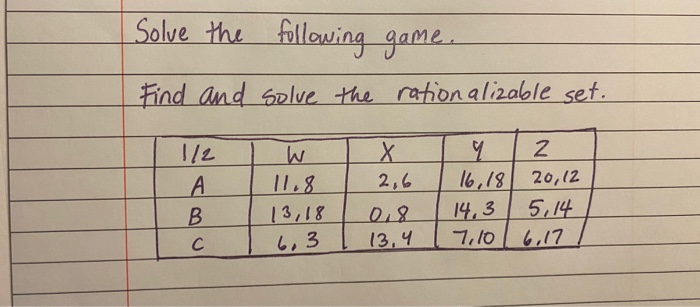 Solve the following game.
Find and solve the rationalizable set.
1/2 W X Y Z
A 11,8 2,6 16,18 20,12
B 13,18 0,8 14,3 5,14
C 6,3 13,4 7,10 6,17